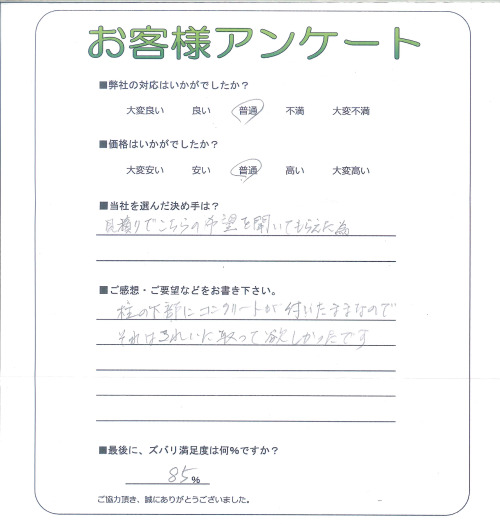 お客様アンケート
■弊社の対応はいかがでしたか？
大変良い 良い 普通 不満 大変不満
■価格はいかがでしたか？
大変安い 安い 普通 高い 大変高い
■当社を選んだ決め手は？
見積りでこちらの希望を聞いてもらえた為
■ご感想・ご要望などをお書き下さい。
柱の下部にコンクリートが付いたままなので
それはきれいに取って欲しかったです
■最後に、ズバリ満足度は何%ですか？
85%
ご協力頂き、誠にありがとうございました。